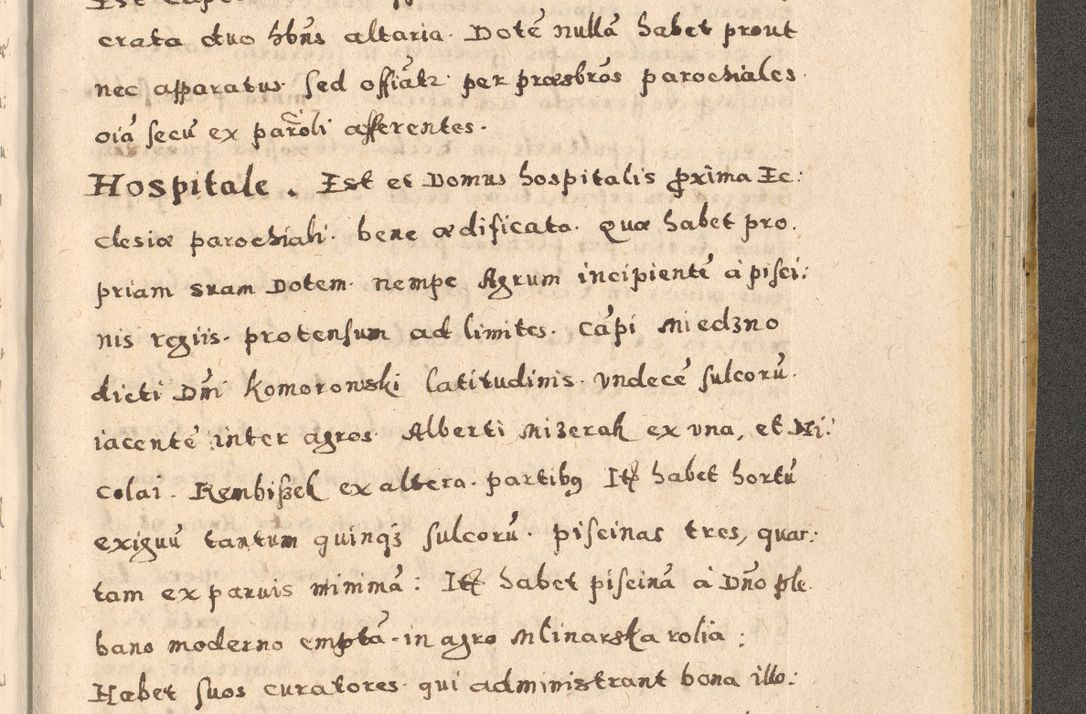 crata duo hbn̄s altaria. Dotē nullā habet prout
nec apparatus. sed offiātr per præsbrōs parochiales.
oiā secū ex parōli afferentes.
Hospitale. Est et Domus hospitalis ꝓxima Ec:
clesiæ parochiali. bene ædificata. Quæ habet pro.
priam suam Dotem. nempe Agrum incipientē à pisci:
nis regiis. protensum ad limites. Cāpi Miedzno
dicti Dn̄i Komorowski latitudinis. vndecē sulcorū.
iacentē inter agros. Alberti Mizerak ex vna, et Ni:
colai. Rembiszek ex altera. partibꝫ Itē habet hortū
exiguū tantum quinqꝫ sulcorū. piscinas tres, quar:
tam ex paruis minimā: Itē habet piscinā à Dn̄o ple.
bano moderno emptā. in agro Mlinarska rolia:
Habet suos curatores. qui administrant bona illo: